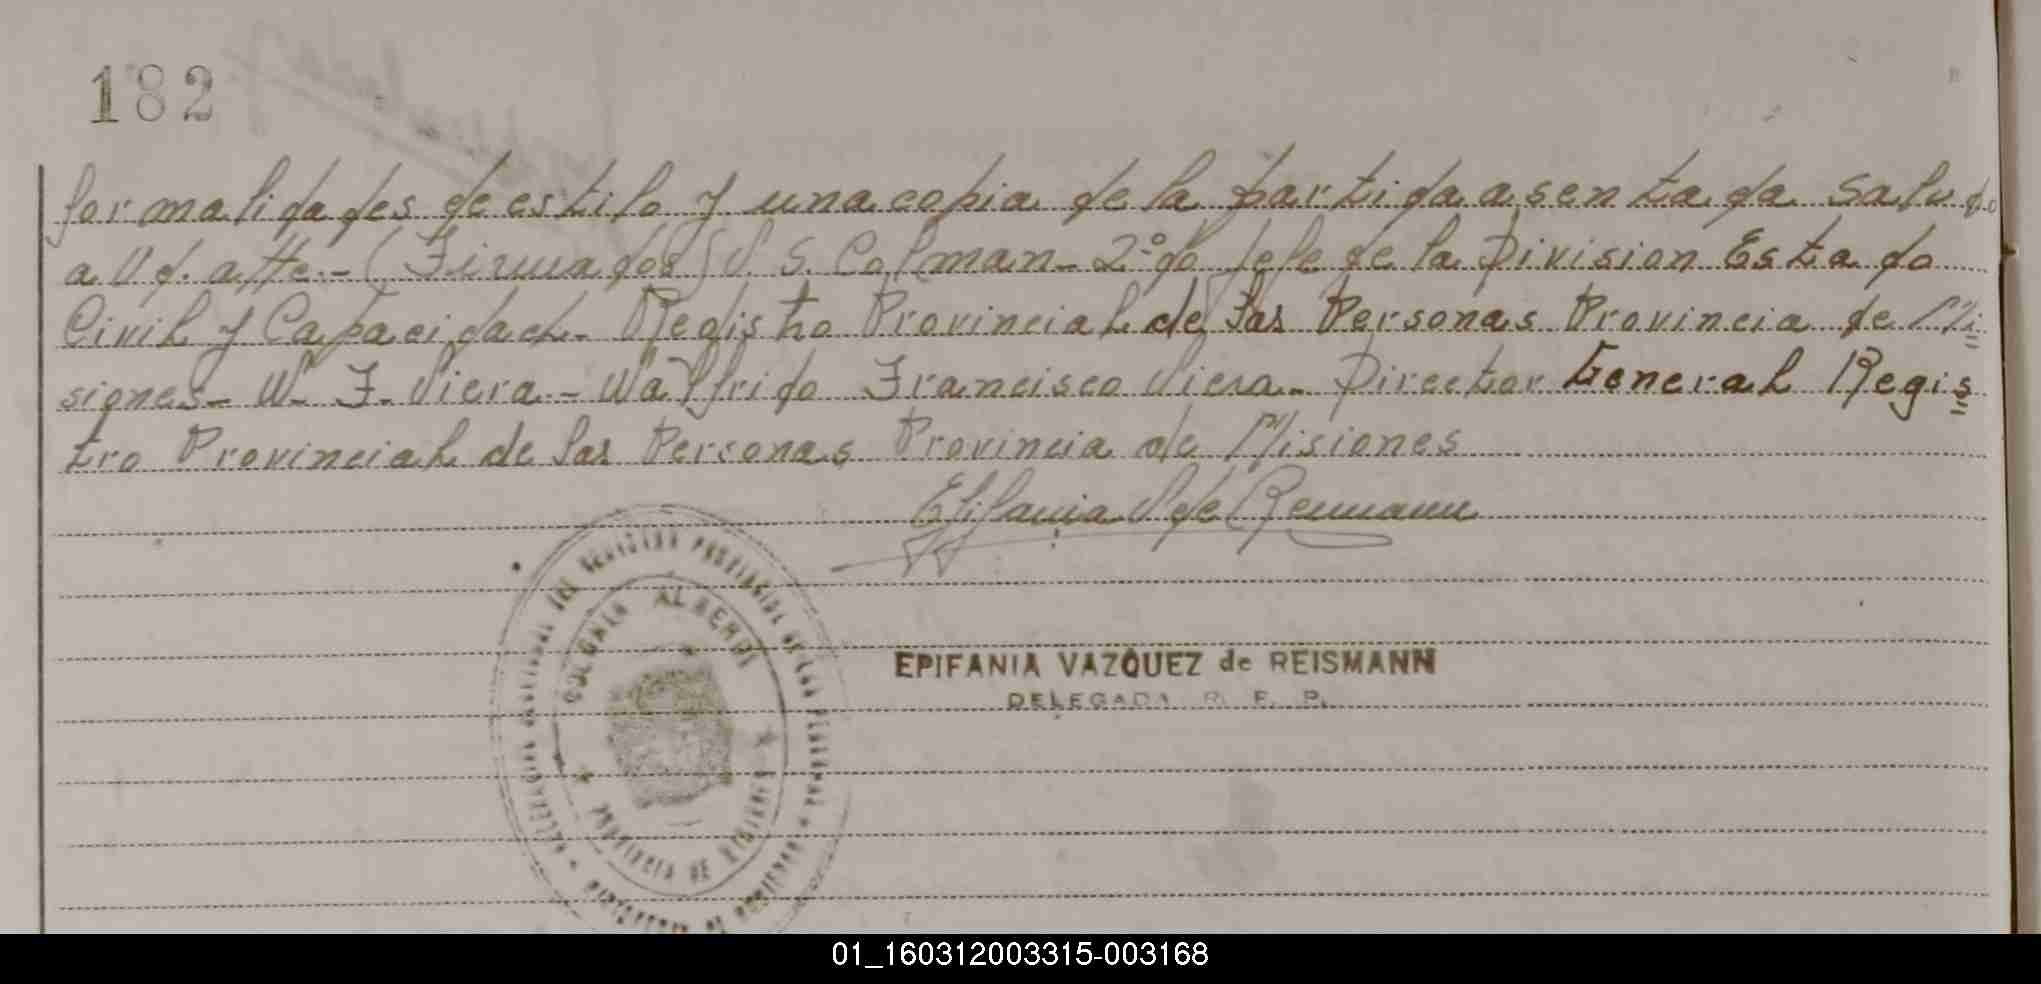 182
formalidades de estilo y una copia de la partida asentada Saludo
a Ud. atte.- (Firmados) V. S. Colman - 2º do Jefe de la Division Estado
Civil y Capacidad - Registro Provincial de las Personas Provincia de Mi
siones - W. F. Viera - Walfrido Francisco Viera - Director General Regis
tro Provincial de las Personas Provincia de Misiones
Epifania V de Reismann
COLONIA ALBERDI
PROVINCIA DE MISIONES
EPIFANIA VAZQUEZ de REISMANN
DELEGADA R. P. P.
01_160312003315-003168